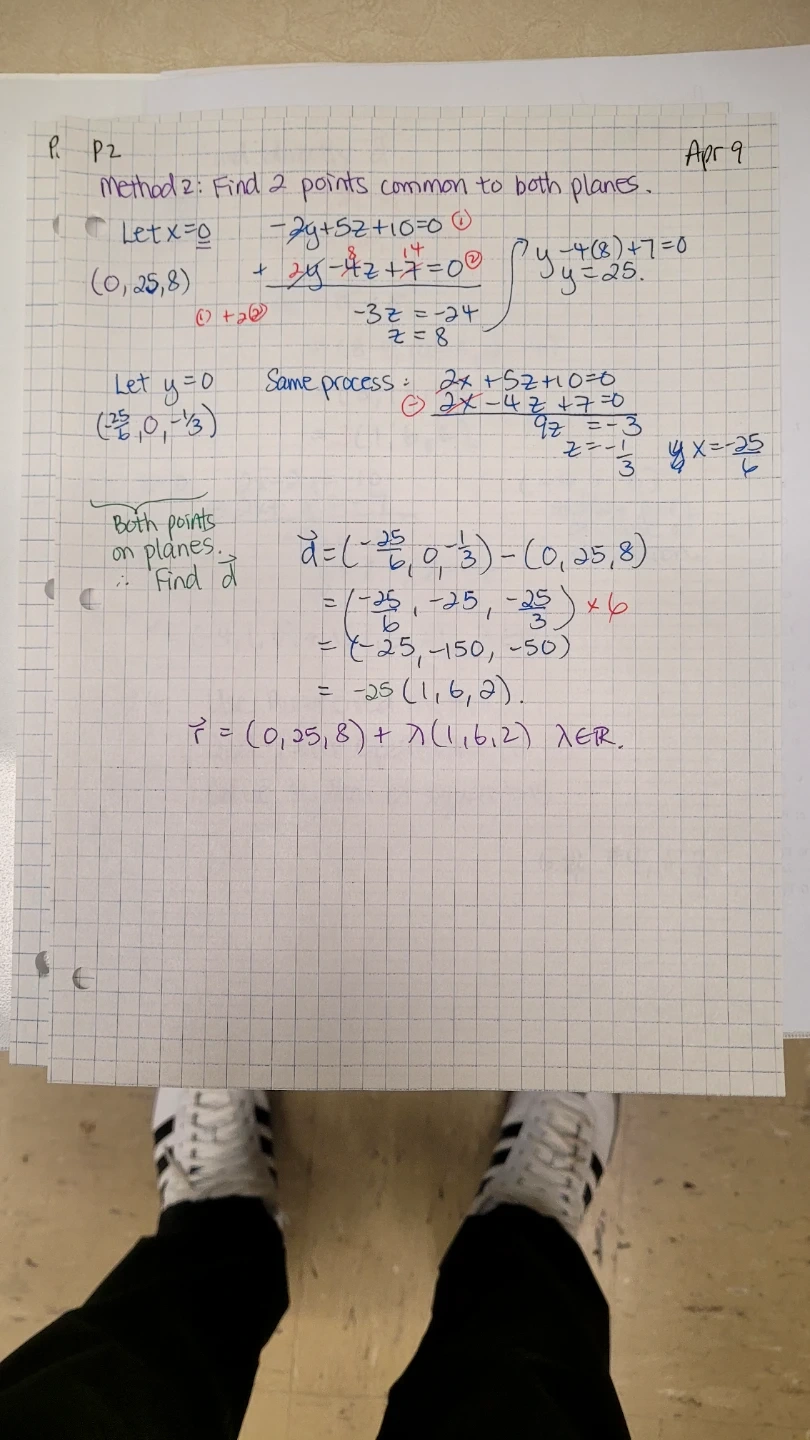 P. P2 Apr 9
Method 2: Find 2 points common to both planes.
Let x=0 -2y+5z+10=0 ①
(0,25,8) + 2y -4z +7=0 ② 8 14
y -4(8)+7=0
y = 25.
① +2② -3z = -24
z = 8
Let y=0 Same process: 2x +5z+10=0
(-25/6, 0, -1/3) (-) 2x -4z +7=0
9z = -3
z = -1/3 x = -25/6
Both points
on planes.
∴ Find d⃗
d⃗ = (-25/6, 0, -1/3) - (0, 25, 8)
= (-25/6, -25, -25/3) × 6
= (-25, -150, -50)
= -25(1,6,2).
r⃗ = (0,25,8) + λ(1,6,2) λ∈ℝ.